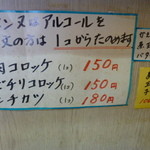 ン又はアルコールを
文の方は 1コからたのめます
肉コロッケ (1コ) 150円
ピチリコロッケ (1コ) 150円
ンチカツ (1コ) 180円